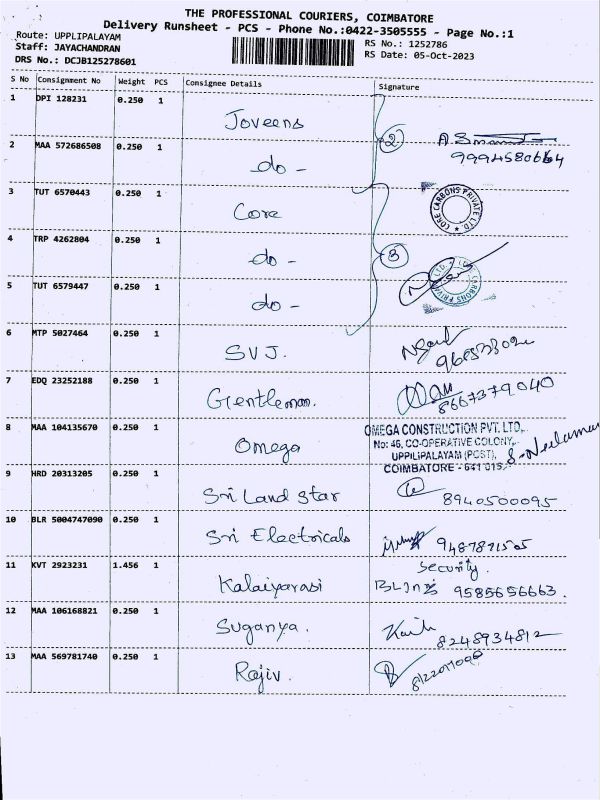 THE PROFESSIONAL COURIERS, COIMBATORE
Delivery Runsheet - PCS - Phone No.:0422-3505555 - Page No.:1
Route: UPPLIPALAYAM
Staff: JAYACHANDRAN
DRS No.: DCJB125278601
RS No.: 1252786
RS Date: 05-Oct-2023
S No Consignment No Weight PCS Consignee Details Signature
1 DPI 128231 0.250 1 Joveens
2
9994580664
2 MAA 572686508 0.250 1 -do-
3 TUT 6570443 0.250 1 Core
CORE CARBONS PRIVATE LTD.
4 TRP 4262804 0.250 1 -do-
3
5 TUT 6579447 0.250 1 -do-
6 MTP 5027464 0.250 1 SVJ.
7 EDQ 23252188 0.250 1 Gentleman.
8667379040
8 MAA 104135670 0.250 1 Omega
OMEGA CONSTRUCTION PVT. LTD.,
No: 46, CO-OPERATIVE COLONY,
UPPILIPALAYAM (POST),
COIMBATORE - 641 015.
9 HRD 20313205 0.250 1 Sri Land star
8940500095
10 BLR 5004747090 0.250 1 Sri Electricals
11 KVT 2923231 1.456 1 Kalaiyarasi
Security.
9585656663.
12 MAA 106168821 0.250 1 Suganya.
8248934812
13 MAA 569781740 0.250 1 Rajiv.